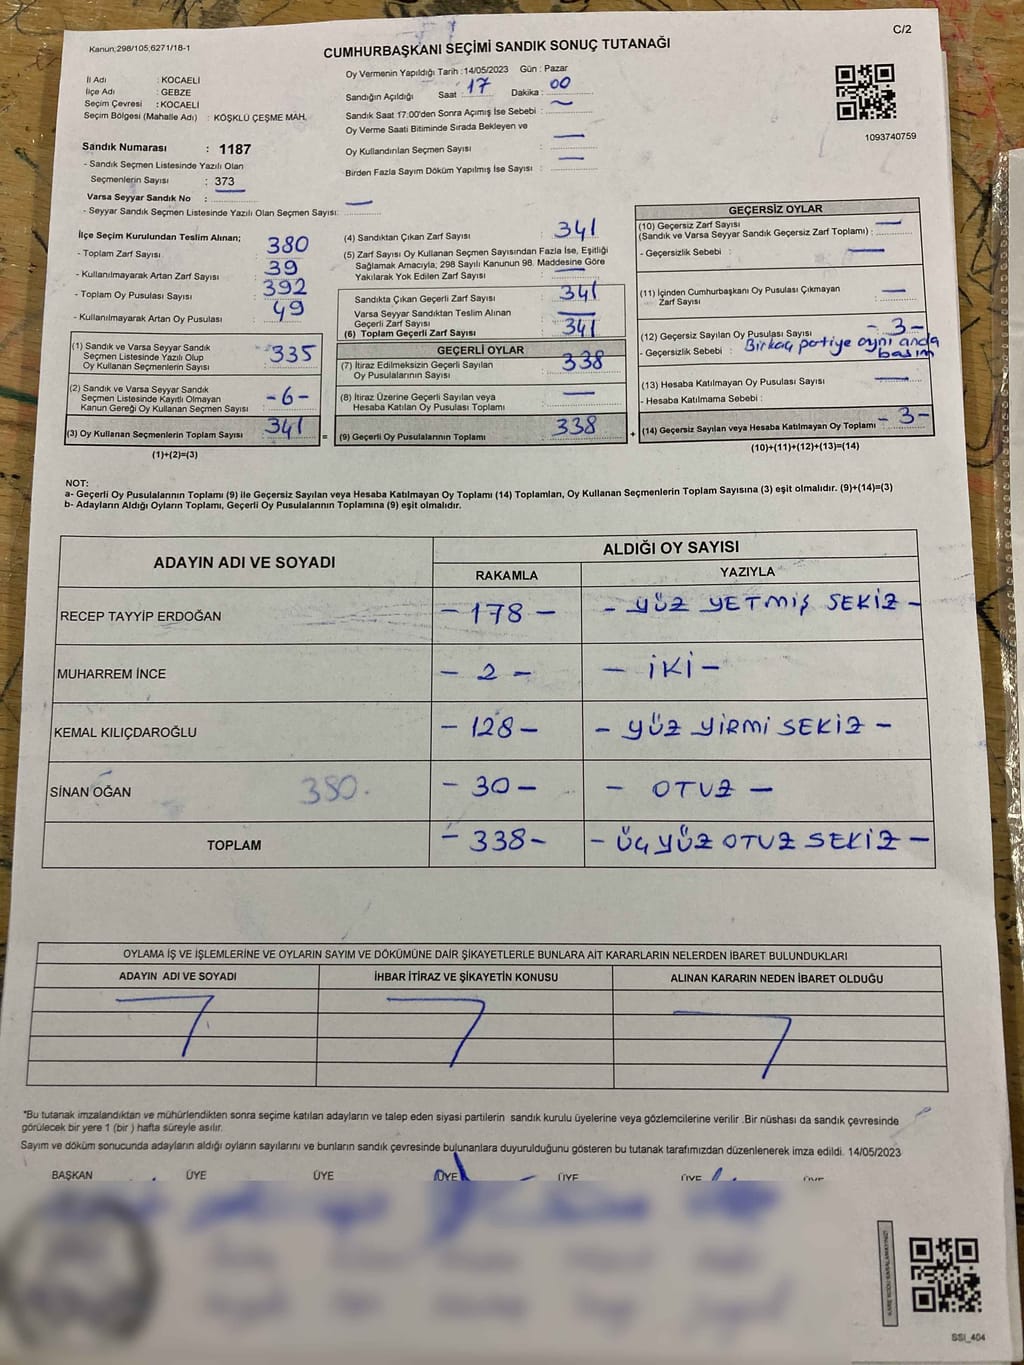 Kanun,298/105,6271/18-1
C/2
CUMHURBAŞKANI SEÇİMİ SANDIK SONUÇ TUTANAĞI
İl Adı : KOCAELİ
İlçe Adı : GEBZE
Seçim Çevresi : KOCAELİ
Seçim Bölgesi (Mahalle Adı) : KÖŞKLÜ ÇEŞME MAH.
Oy Vermenin Yapıldığı Tarih : 14/05/2023 Gün : Pazar
Sandığın Açıldığı Saat : 17 Dakika : 00
Sandık Saat 17:00'den Sonra Açımış İse Sebebi :
Oy Verme Saati Bitiminde Sırada Bekleyen ve
Oy Kullandırılan Seçmen Sayısı :
Birden Fazla Sayım Döküm Yapılmış İse Sayısı :
1093740759
Sandık Numarası : 1187
- Sandık Seçmen Listesinde Yazılı Olan
Seçmenlerin Sayısı : 373
Varsa Seyyar Sandık No :
- Seyyar Sandık Seçmen Listesinde Yazılı Olan Seçmen Sayısı:
İlçe Seçim Kurulundan Teslim Alınan;
- Toplam Zarf Sayısı : 380
- Kullanılmayarak Artan Zarf Sayısı : 39
- Toplam Oy Pusulası Sayısı : 392
- Kullanılmayarak Artan Oy Pusulası : 49
(1) Sandık ve Varsa Seyyar Sandık
Seçmen Listesinde Yazılı Olup
Oy Kullanan Seçmenlerin Sayısı : 335
(2) Sandık ve Varsa Seyyar Sandık
Seçmen Listesinde Kayıtlı Olmayan
Kanun Gereği Oy Kullanan Seçmen Sayısı : -6-
(3) Oy Kullanan Seçmenlerin Toplam Sayısı : 341
(1)+(2)=(3)
=
(4) Sandıktan Çıkan Zarf Sayısı : 341
(5) Zarf Sayısı Oy Kullanan Seçmen Sayısından Fazla İse, Eşitliği
Sağlamak Amacıyla, 298 Sayılı Kanunun 98. Maddesine Göre
Yakılarak Yok Edilen Zarf Sayısı :
Sandıkta Çıkan Geçerli Zarf Sayısı : 341
Varsa Seyyar Sandıktan Teslim Alınan
Geçerli Zarf Sayısı :
(6) Toplam Geçerli Zarf Sayısı : 341
GEÇERLİ OYLAR
(7) İtiraz Edilmeksizin Geçerli Sayılan
Oy Pusulalarının Sayısı : 338
(8) İtiraz Üzerine Geçerli Sayılan veya
Hesaba Katılan Oy Pusulası Toplamı :
(9) Geçerli Oy Pusulalarının Toplamı : 338
+
GEÇERSİZ OYLAR
(10) Geçersiz Zarf Sayısı
(Sandık ve Varsa Seyyar Sandık Geçersiz Zarf Toplamı) :
- Geçersizlik Sebebi :
(11) İçinden Cumhurbaşkanı Oy Pusulası Çıkmayan
Zarf Sayısı :
(12) Geçersiz Sayılan Oy Pusulası Sayısı : - 3 -
- Geçersizlik Sebebi : Birkaç partiye aynı anda
basım
(13) Hesaba Katılmayan Oy Pusulası Sayısı :
- Hesaba Katılmama Sebebi :
(14) Geçersiz Sayılan veya Hesaba Katılmayan Oy Toplamı : - 3 -
(10)+(11)+(12)+(13)=(14)
NOT:
a- Geçerli Oy Pusulalarının Toplamı (9) ile Geçersiz Sayılan veya Hesaba Katılmayan Oy Toplamı (14) Toplamları, Oy Kullanan Seçmenlerin Toplam Sayısına (3) eşit olmalıdır. (9)+(14)=(3)
b- Adayların Aldığı Oyların Toplamı, Geçerli Oy Pusulalarının Toplamına (9) eşit olmalıdır.
ADAYIN ADI VE SOYADI
ALDIĞI OY SAYISI
RAKAMLA YAZIYLA
RECEP TAYYİP ERDOĞAN - 178 - - YÜZ YETMİŞ SEKİZ -
MUHARREM İNCE - 2 - - İKİ -
KEMAL KILIÇDAROĞLU - 128 - - YÜZ YİRMİ SEKİZ -
SİNAN OĞAN 380. - 30 - - OTUZ -
TOPLAM - 338 - - ÜÇ YÜZ OTUZ SEKİZ -
OYLAMA İŞ VE İŞLEMLERİNE VE OYLARIN SAYIM VE DÖKÜMÜNE DAİR ŞİKAYETLERLE BUNLARA AİT KARARLARIN NELERDEN İBARET BULUNDUKLARI
ADAYIN ADI VE SOYADI İHBAR İTİRAZ VE ŞİKAYETİN KONUSU ALINAN KARARIN NEDEN İBARET OLDUĞU
*Bu tutanak imzalandıktan ve mühürlendikten sonra seçime katılan adayların ve talep eden siyasi partilerin sandık kurulu üyelerine veya gözlemcilerine verilir .Bir nüshası da sandık çevresinde
görülecek bir yere 1 (bir ) hafta süreyle asılır.
Sayım ve döküm sonucunda adayların aldığı oyların sayılarını ve bunların sandık çevresinde bulunanlara duyurulduğunu gösteren bu tutanak tarafımızdan düzenlenerek imza edildi. 14/05/2023
BAŞKAN ÜYE ÜYE ÜYE ÜYE ÜYE ÜYE
SSI_404